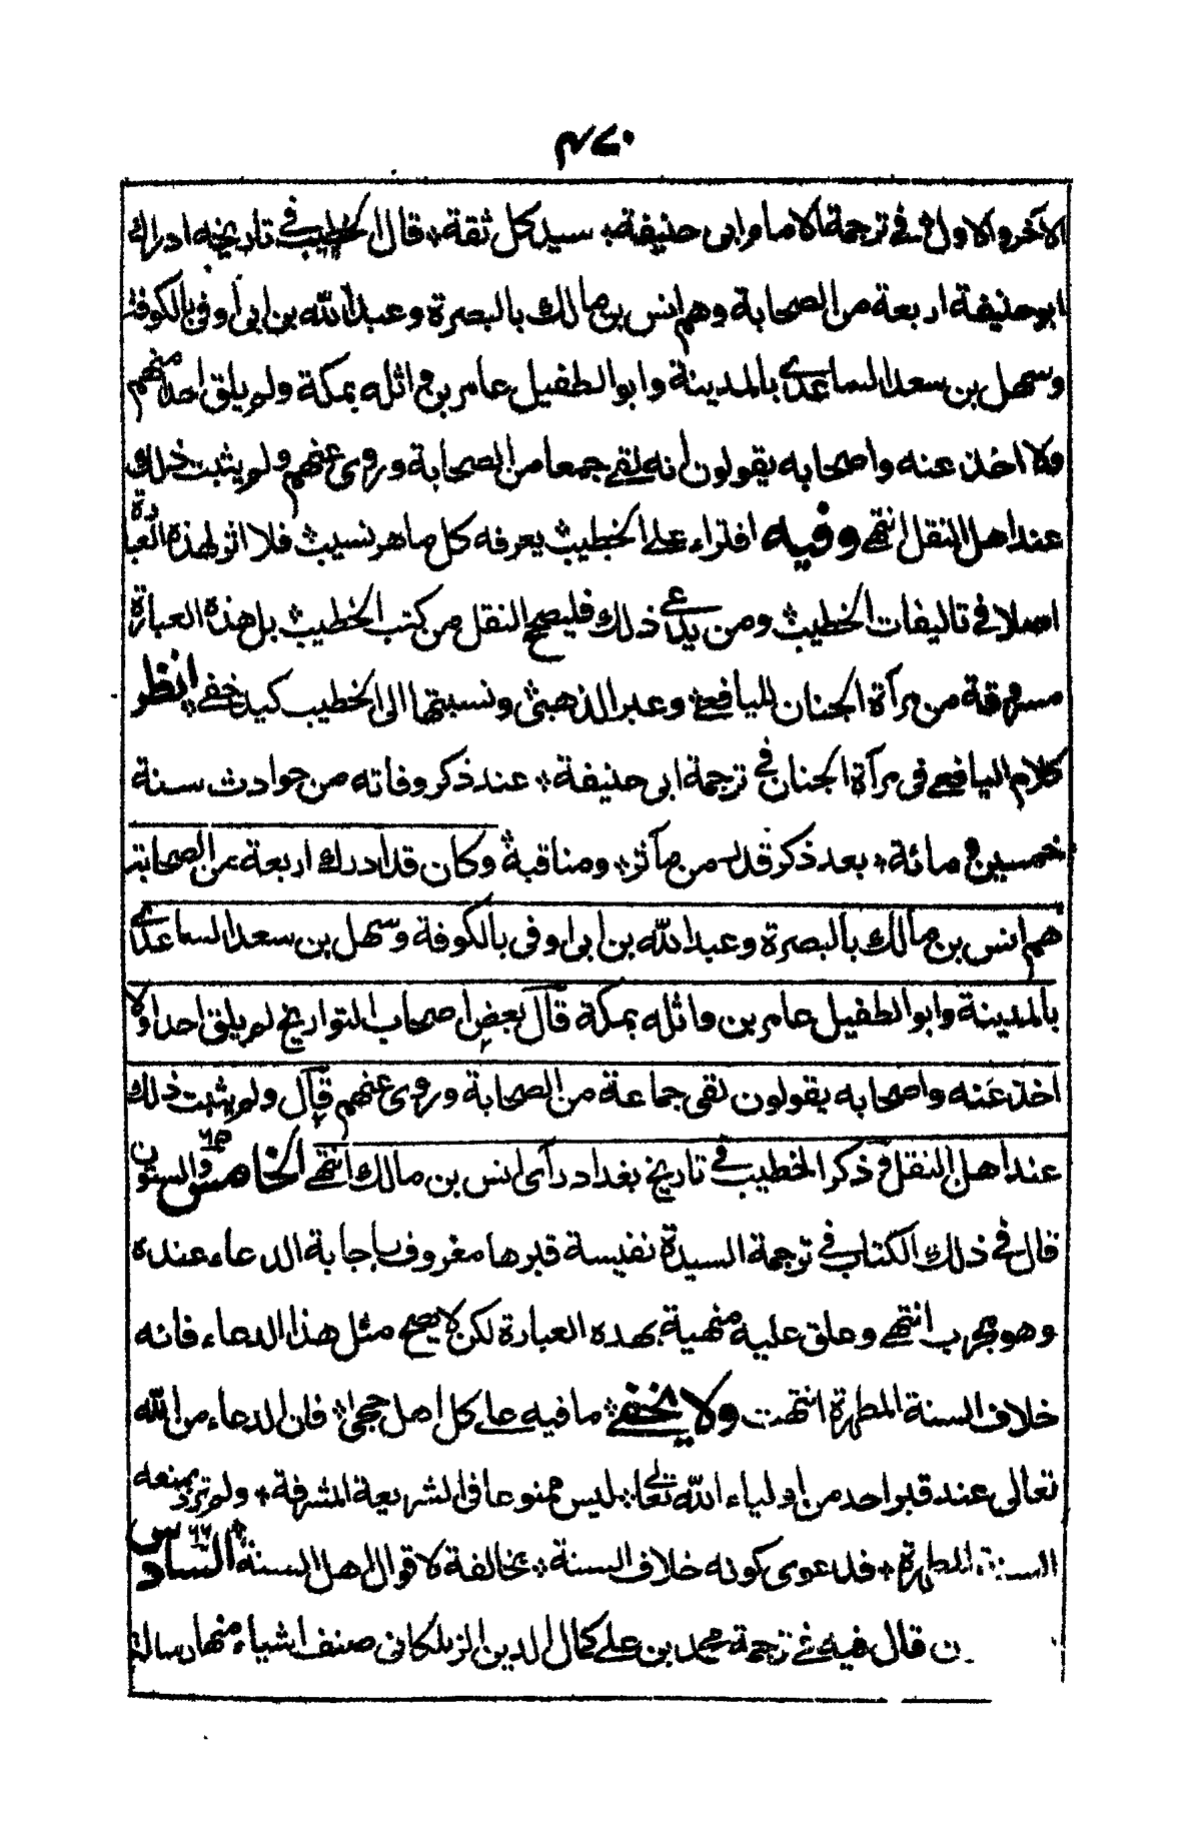 ٤٧٠
الآخر والاول في ترجمة الامام ابى حنيفة سيد كل ثقة قال الخطيب في تاريخه ادراك
ابو حنيفة اربعة من الصحابة وهم انس بن مالك بالبصرة وعبد الله بن ابى اوفى بالكوفة
وسهل بن سعد الساعدى بالمدينة وابو الطفيل عامر بن واثله بمكة ولم يلق احدا منهم
ولا اخذ عنه واصحابه يقولون انه لقى جمعا من الصحابة وروى عنهم ولم يثبت ذلك
عند اهل النقل انتهى وفيه افتراء على الخطيب يعرفه كل ماهر نسيب فلا اثر لهذه العبارة
اصلا في تاليفات الخطيب ومن يدعى ذلك فليصحح النقل من كتب الخطيب بل هذه العبارة
مسروقة من مرآة الجنان لليافعى وعبر الذهبى ونسبتها الى الخطيب كيد خفى انظر
كلام اليافعى فى مرآة الجنان في ترجمة ابى حنيفة عند ذكر وفاته من حوادث سنة
خمسين ومائة بعد ذكر قدر من مآثره ومناقبه وكان قد ادرك اربعة من الصحابة
هم انس بن مالك بالبصرة وعبد الله بن ابى اوفى بالكوفة وسهل بن سعد الساعدى
بالمدينة وابو الطفيل عامر بن واثله بمكة قال بعض اصحاب التواريخ لم يلق احدا ولا
اخذ عنه واصحابه يقولون لقى جماعة من الصحابة وروى عنهم قال ولم يثبت ذلك
عند اهل النقل وذكر الخطيب في تاريخ بغداد رآى انس بن مالك انتهى الخامس والستون ٦٥
قال في ذلك الكتاب في ترجمة السيدة نفيسة قبرها معروف باجابة الدعاء عنده
وهو مجرب انتهى وعلق عليه منهية بهذه العبارة لكن لا يصح مثل هذا الدعاء فانه
خلاف السنة المطهرة انتهت ولا يخفى ما فيه على كل اهل حجى فان الدعاء من الله
تعالى عند قبر احد من اولياء الله تعالى ليس ممنوعا فى الشريعة المشرفة ولم ترد بمنعه
السنة المطهرة فدعوى كونه خلاف السنة مخالفة لاقوال اهل السنة السادس ٦٦
ن قال فيه في ترجمة محمد بن على كمال الدين الزملكانى صنف اشياء منها رسالة